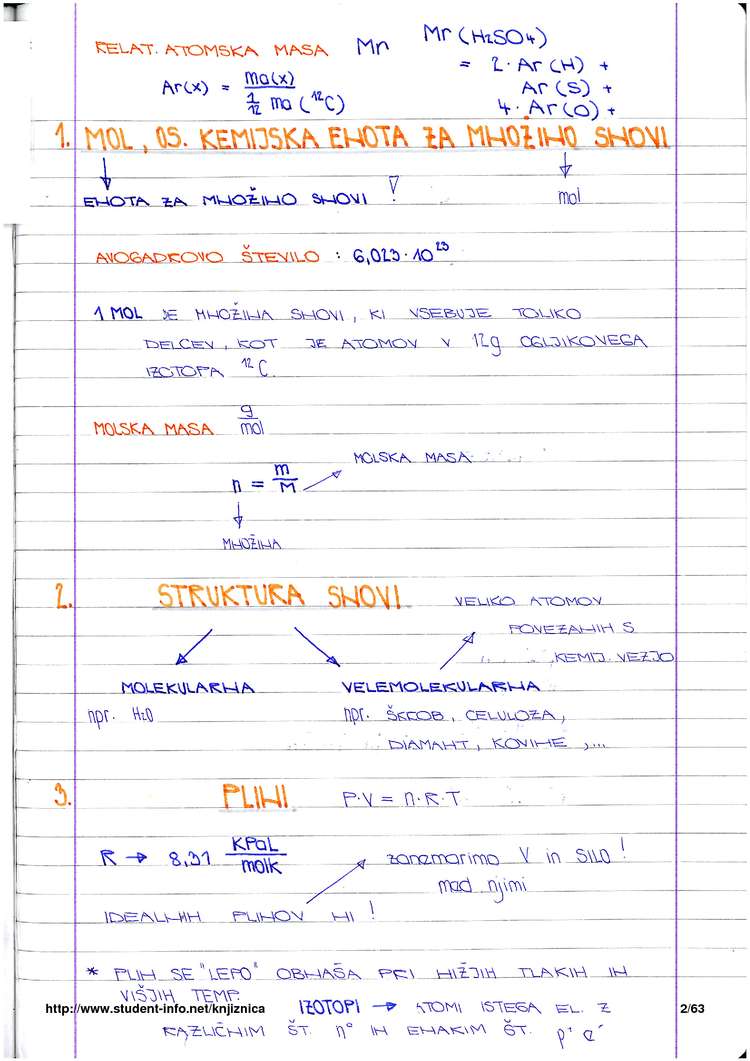 RELAT. ATOMSKA MASA Mr Mr (H2SO4)
= 2 · Ar (H) +
Ar(x) = ma(x) / 1/12 ma (12C) Ar (S) +
4 · Ar (O) +
1. MOL, OS. KEMIJSKA ENOTA ZA MNOŽINO SNOVI
ENOTA ZA MNOŽINO SNOVI ! mol
AVOGADROVO ŠTEVILO : 6,023 · 10^23
1 MOL JE MNOŽINA SNOVI, KI VSEBUJE TOLIKO
DELCEV, KOT JE ATOMOV V 12g OGLJIKOVEGA
IZOTOPA 12C
MOLSKA MASA g/mol
n = m/M → MOLSKA MASA
MNOŽINA
2. STRUKTURA SNOVI VELIKO ATOMOV
POVEZANIH S
KEMIJ. VEZJO
MOLEKULARNA VELEMOLEKULARNA
npr. H2O npr. ŠKROB, CELULOZA,
DIAMANT, KOVINE,...
3. PLINI P·V = n·R·T
R → 8,31 KPaL/molK zanemarimo V in SILO !
med njimi
IDEALNIH PLINOV NI !
* PLIN SE "LEPO" OBNAŠA PRI NIŽJIH TLAKIH IN
VIŠJIH TEMP.
http://www.student-info.net/knjiznica IZOTOPI → ATOMI ISTEGA EL. Z 2/63
RAZLIČNIM ŠT. n° IN ENAKIM ŠT. p+ e-